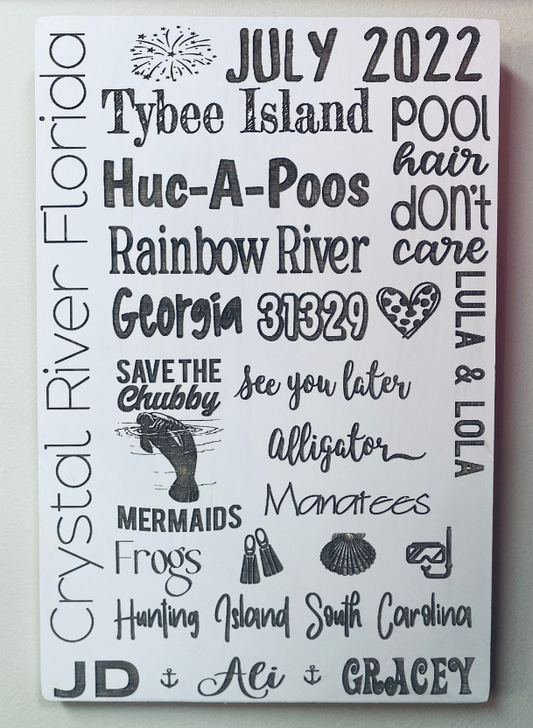 JULY 2022
Crystal River Florida
Tybee Island
POOL
hair
don't
care
Huc-A-Poos
Rainbow River
Georgia 31329
LULA & LOLA
SAVE THE
Chubby
MERMAIDS
see you later
Alligator
Manatees
Frogs
Hunting Island South Carolina
JD Ali GRACEY